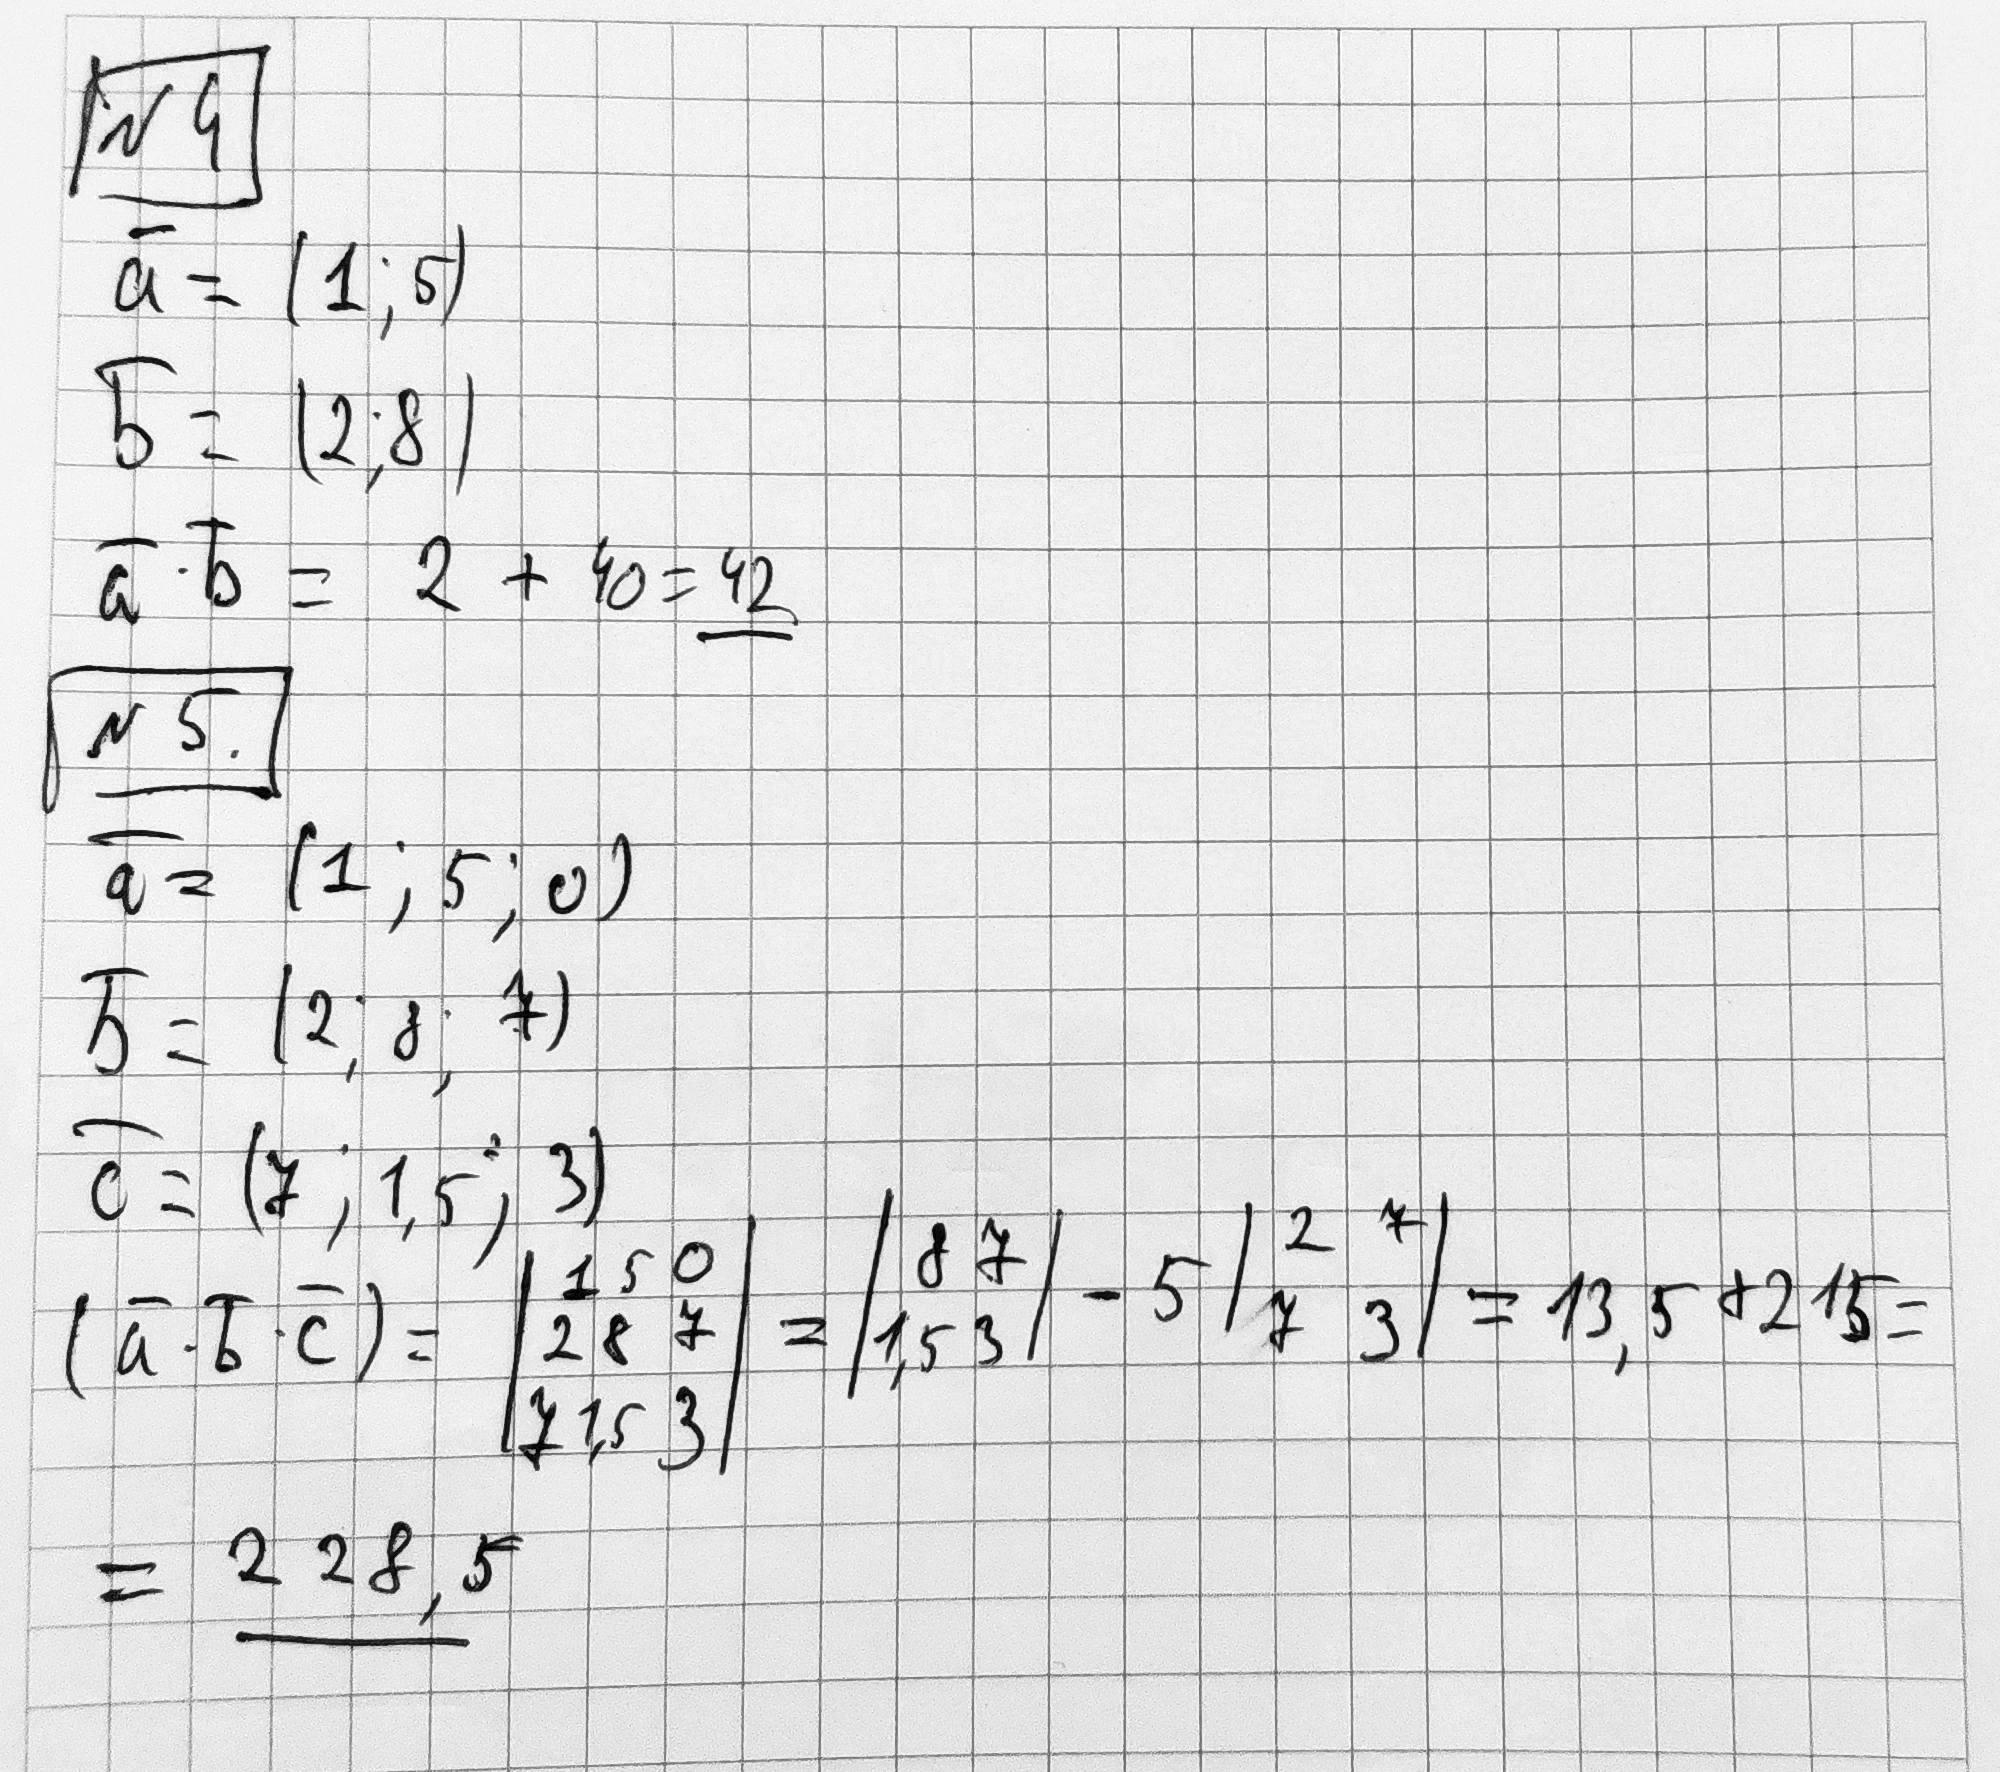 № 4
a̅ = (1; 5)
b̅ = (2; 8)
a̅ · b̅ = 2 + 40 = 42
№ 5.
a̅ = (1; 5; 0)
b̅ = (2; 8; 7)
c̅ = (7; 1,5; 3)
(a̅ · b̅ · c̅) = |1 5 0 / 2 8 7 / 7 1,5 3| = |8 7 / 1,5 3| - 5 |2 7 / 7 3| = 13,5 + 215 =
= 228,5